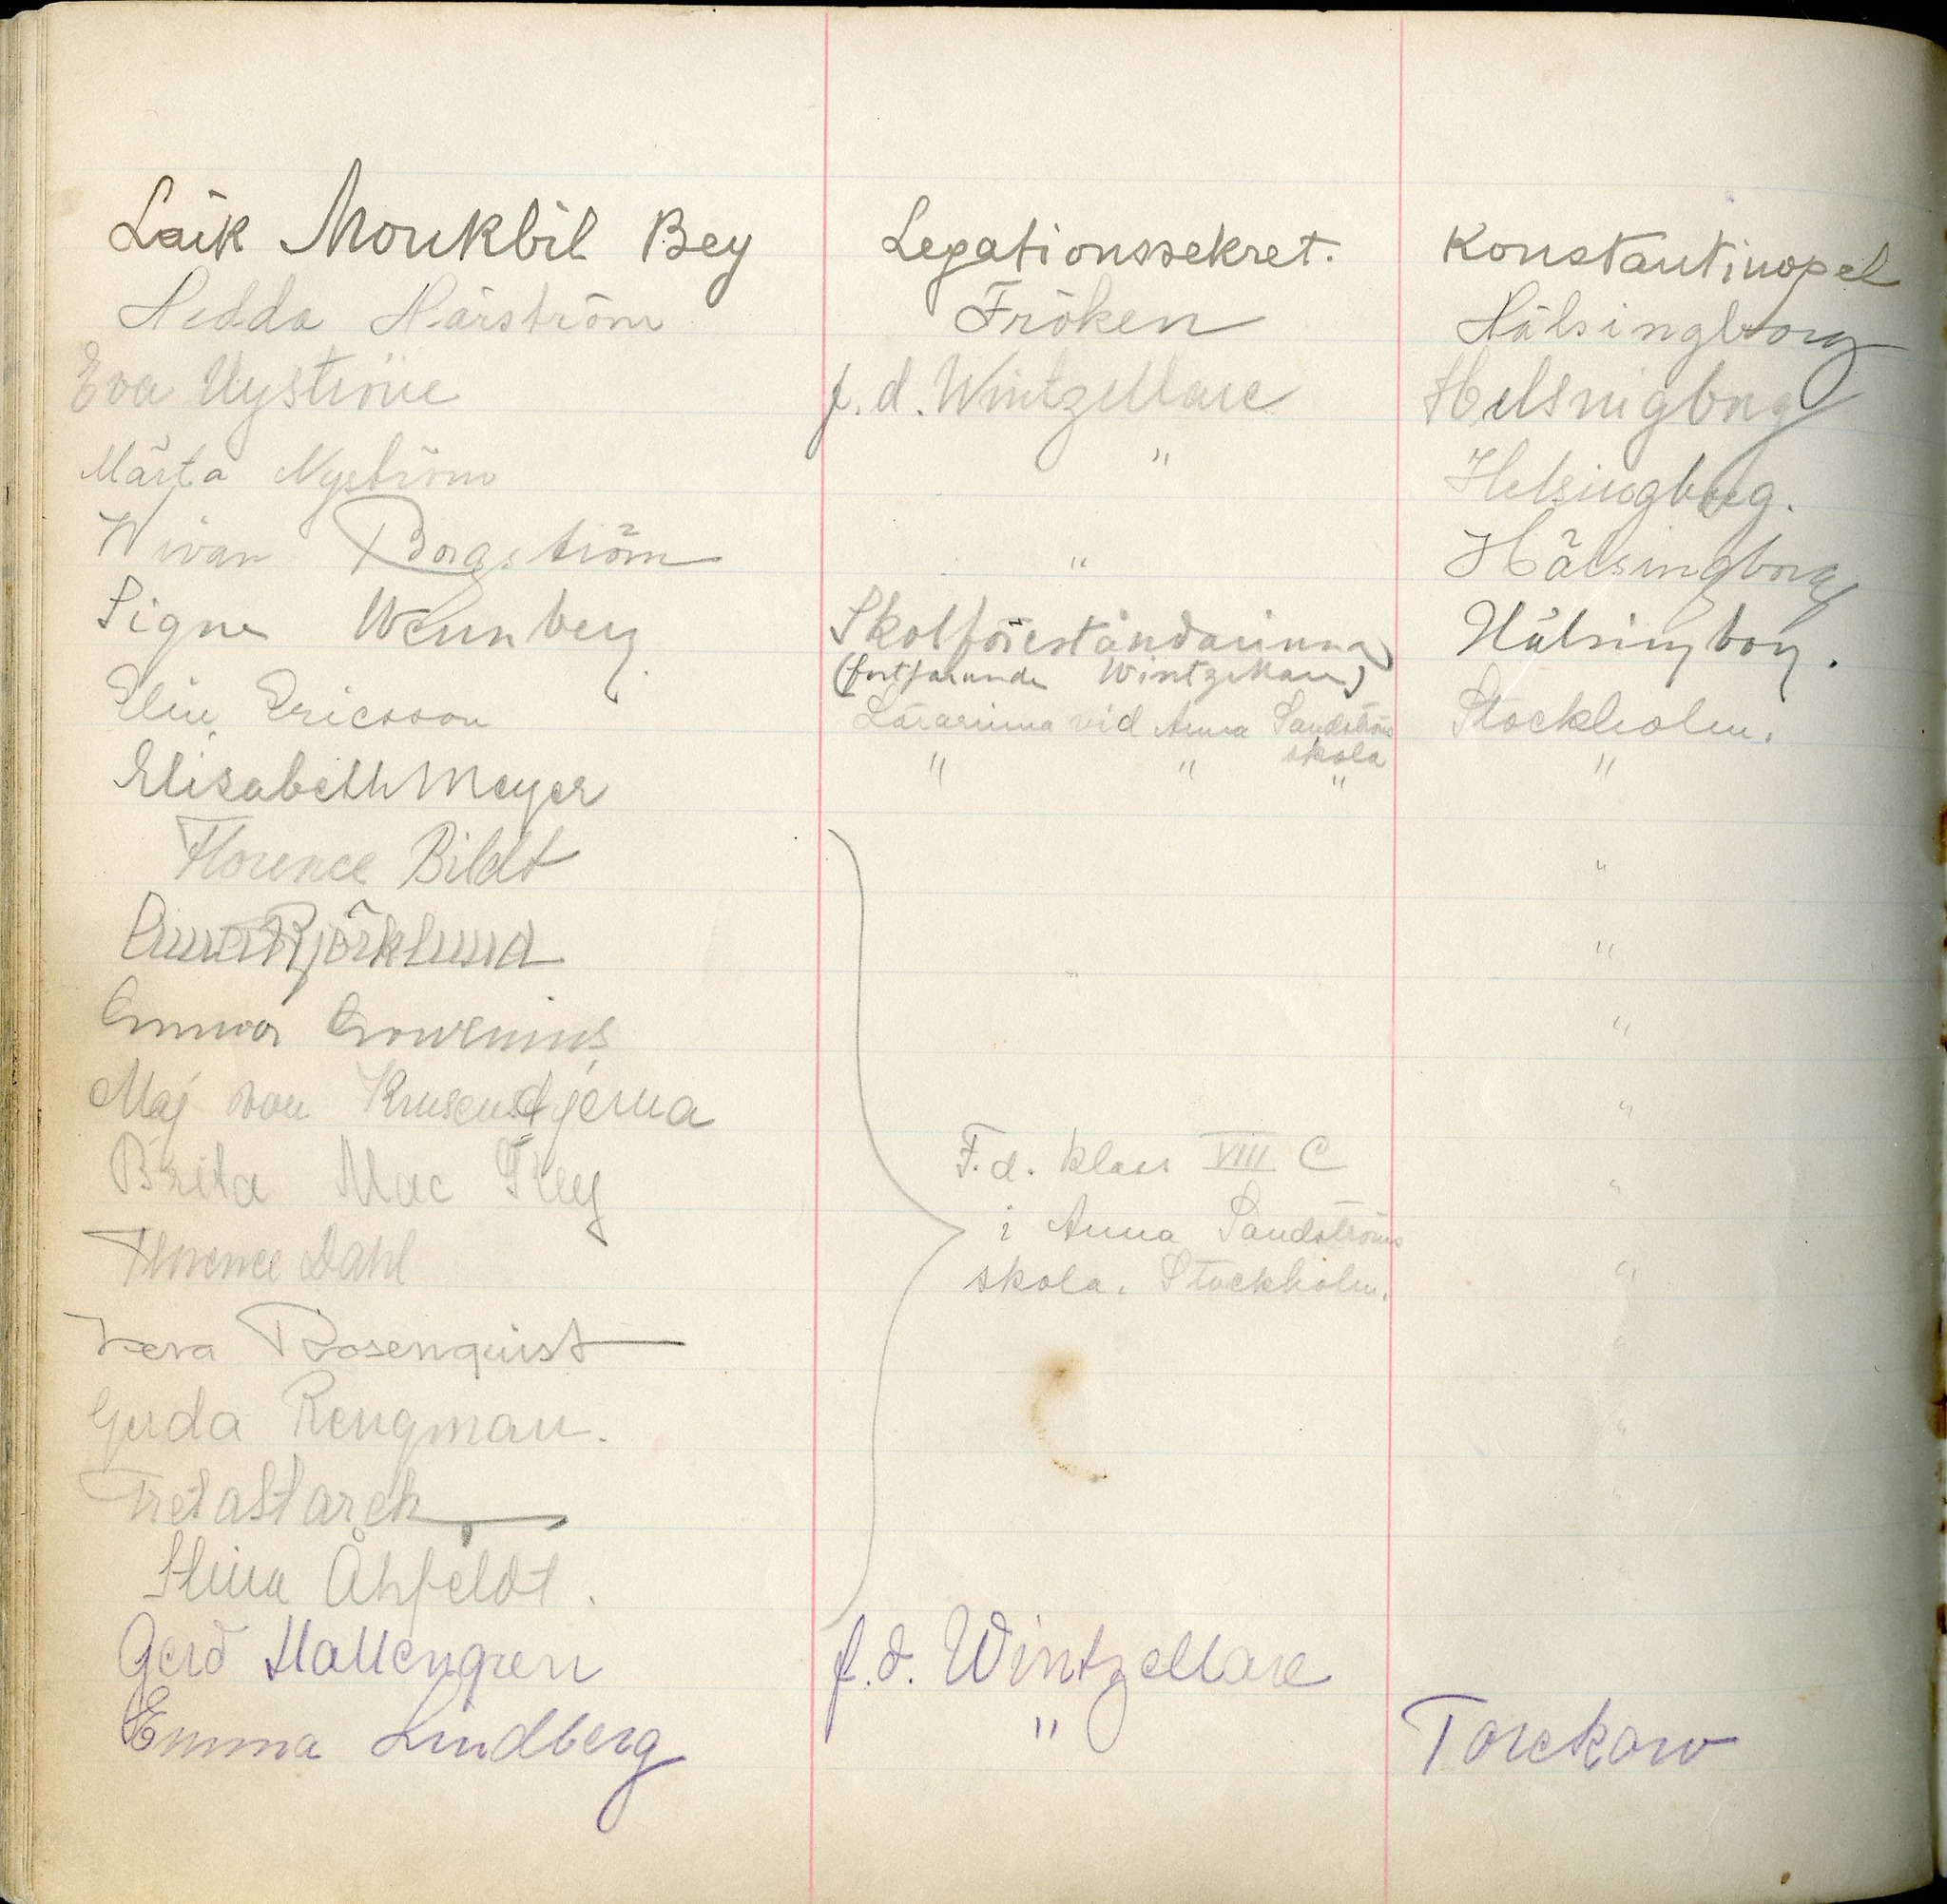 Laik Moukbil Bey Legationssekret. Konstantinopel
Hedda Härström Fröken Hälsingborg
Eva Nyström f. d. Wintzellare Helsingborg
Märta Nyström " Helsingborg.
Wivan Borgström " Hälsingborg
Signe Wennberg. Skolföreståndarinna Hälsingborg.
(fortfarande Wintzellare)
Elin Ericsson Lärarinna vid Anna Sandströms Stockholm.
skola
Elisabeth Meyer " " " "
Florence Bildt "
Anna Björklund "
Anna "
Maj von Krusenstjerna "
F.d. klass VIII C
Brita Mac Key "
i Anna Sandströms
Florence Dahl "
skola. Stockholm.
Vera Rosenquist "
Gerda Rengman. "
Greta Starck "
Stina Åhfeldt.
Gerd Hallengren f.d. Wintzellare
Emma Lindberg " Torekow